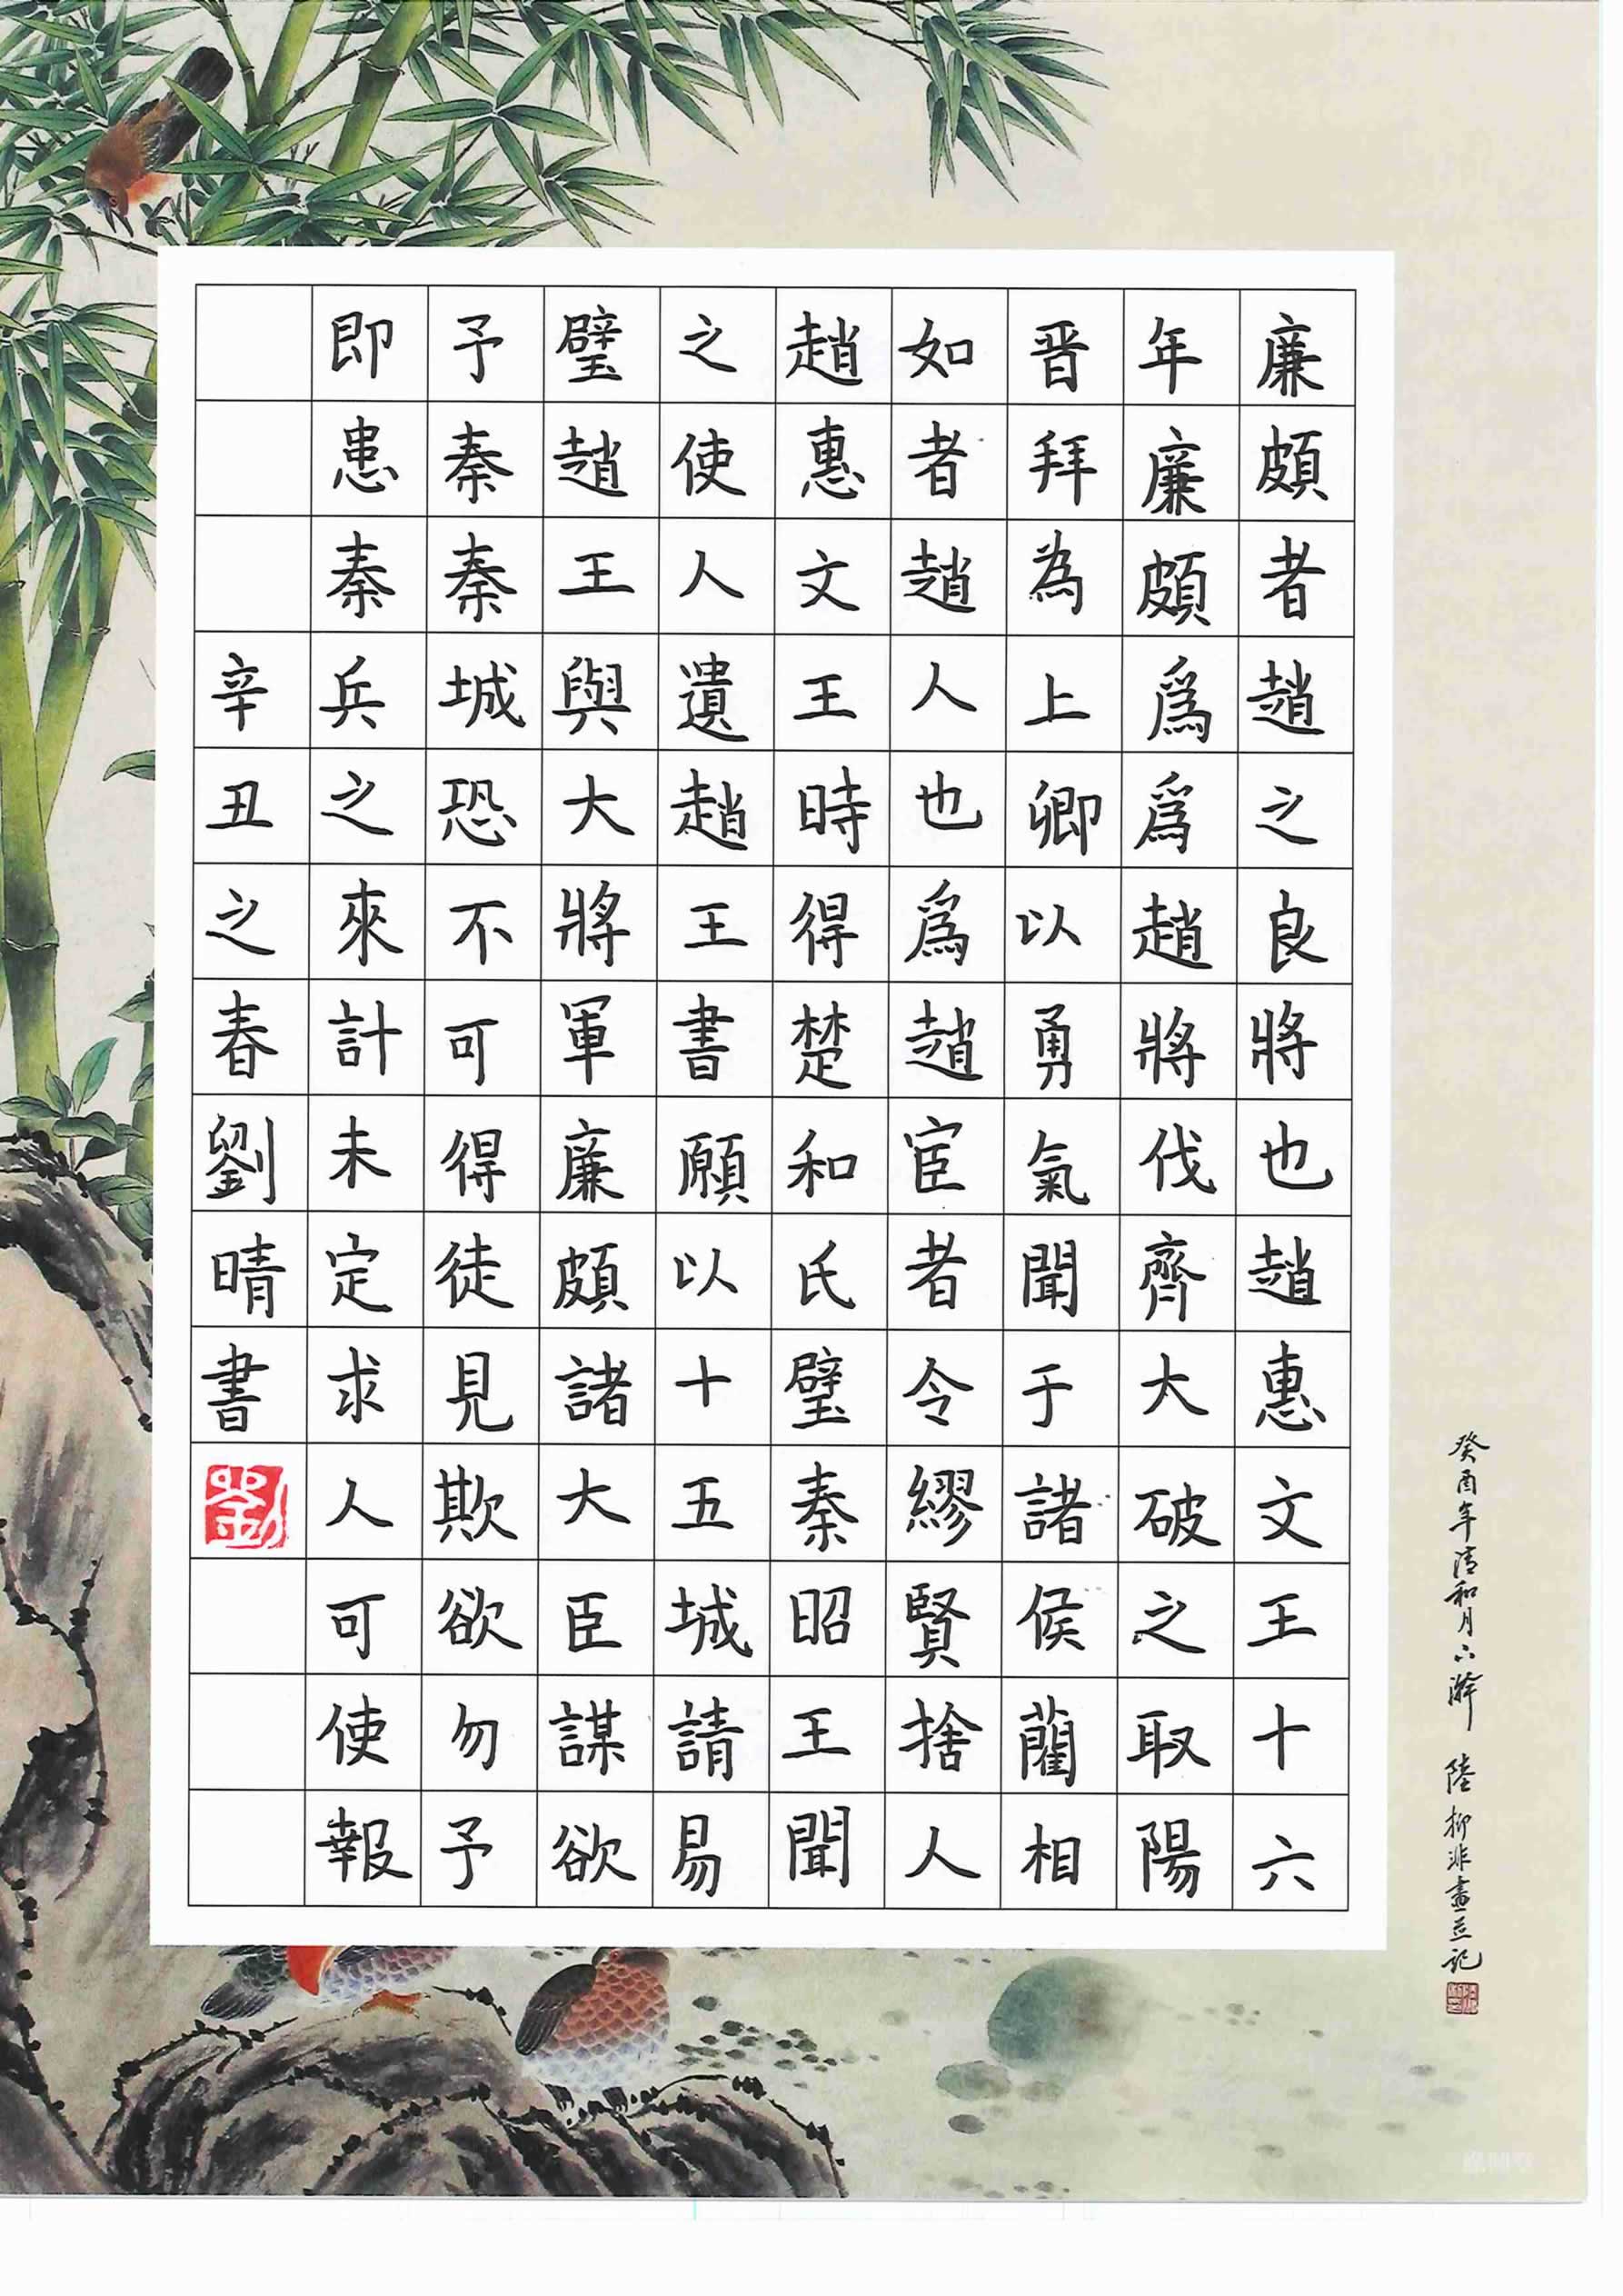 癸酉年清和月下澣 陸抑非畫並記
廉頗者趙之良將也趙惠文王十六
年廉頗爲爲趙將伐齊大破之取陽
晋拜為上卿以勇氣聞于諸侯藺相
如者趙人也爲趙宦者令繆賢捨人
趙惠文王時得楚和氏璧秦昭王聞
之使人遺趙王書願以十五城請易
璧趙王與大將軍廉頗諸大臣謀欲
予秦秦城恐不可得徒見欺欲勿予
即患秦兵之來計未定求人可使報
辛丑之春劉晴書
劉